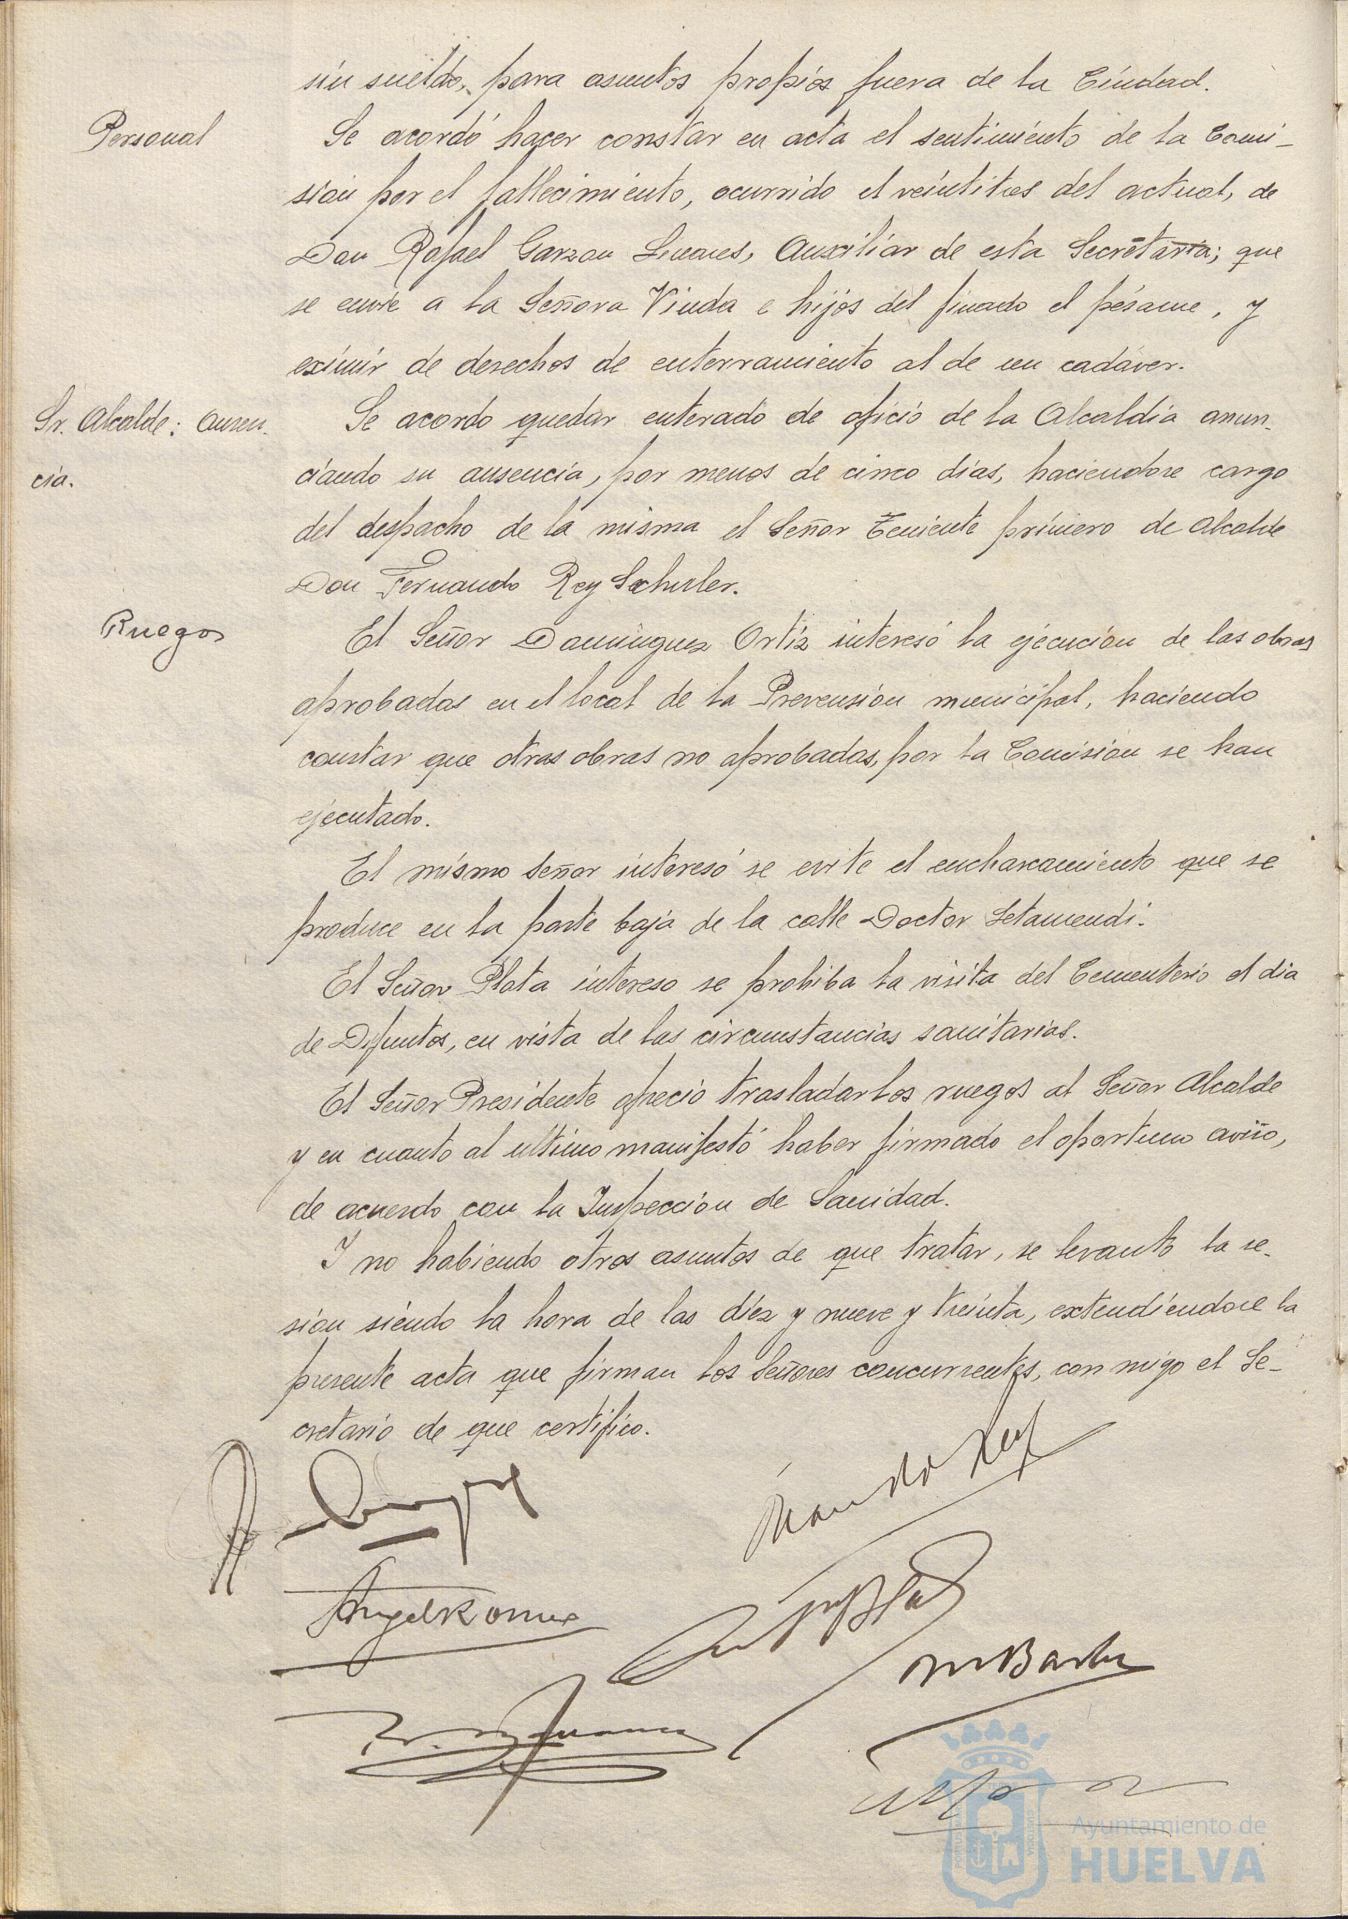 sin sueldo, para asuntos propios fuera de la Ciudad.
Personal
Se acordó hacer constar en acta el sentimiento de la Comi-
sion por el fallecimiento, ocurrido el veintitres del actual, de
Don Rafael Garzon Linares, Auxiliar de esta Secretaria; que
se envie a la Señora Viuda e hijos del finado el pésame, y
eximir de derechos de enterramiento al de un cadáver.
Sr. Alcalde: Ausen-
cia.
Se acordo quedar enterado de oficio de la Alcaldia anun-
ciando su ausencia, por menos de cinco dias, haciendose cargo
del despacho de la misma el Señor Teniente primero de Alcalde
Don Fernando Rey
Ruegos
El Señor Dominguez Ortiz interesó la ejecucion de las obras
aprobadas en el local de la Prevension municipal, haciendo
constar que otras obras no aprobadas, por la Comision se han
ejecutado.
El mismo Señor interesó se evite el encharcamiento que se
produce en la parte baja de la calle Doctor Letamendi.
El Señor Plata intereso se prohiba la visita del Cementerio el dia
de Difuntos, en vista de las circunstancias sanitarias.
El Señor Presidente ofrecio trasladar los ruegos al Señor Alcalde
y en cuanto al ultimo manifestó haber firmado el oportuno aviso,
de acuerdo con la Inspeccion de Sanidad.
Y no habiendo otros asuntos de que tratar, se levanto la se-
sion siendo la hora de las diez y nueve y treinta, extendiendose la
presente acta que firman los Señores concurrentes, con migo el Se-
cretario de que certifico.
Ayuntamiento de
HUELVA